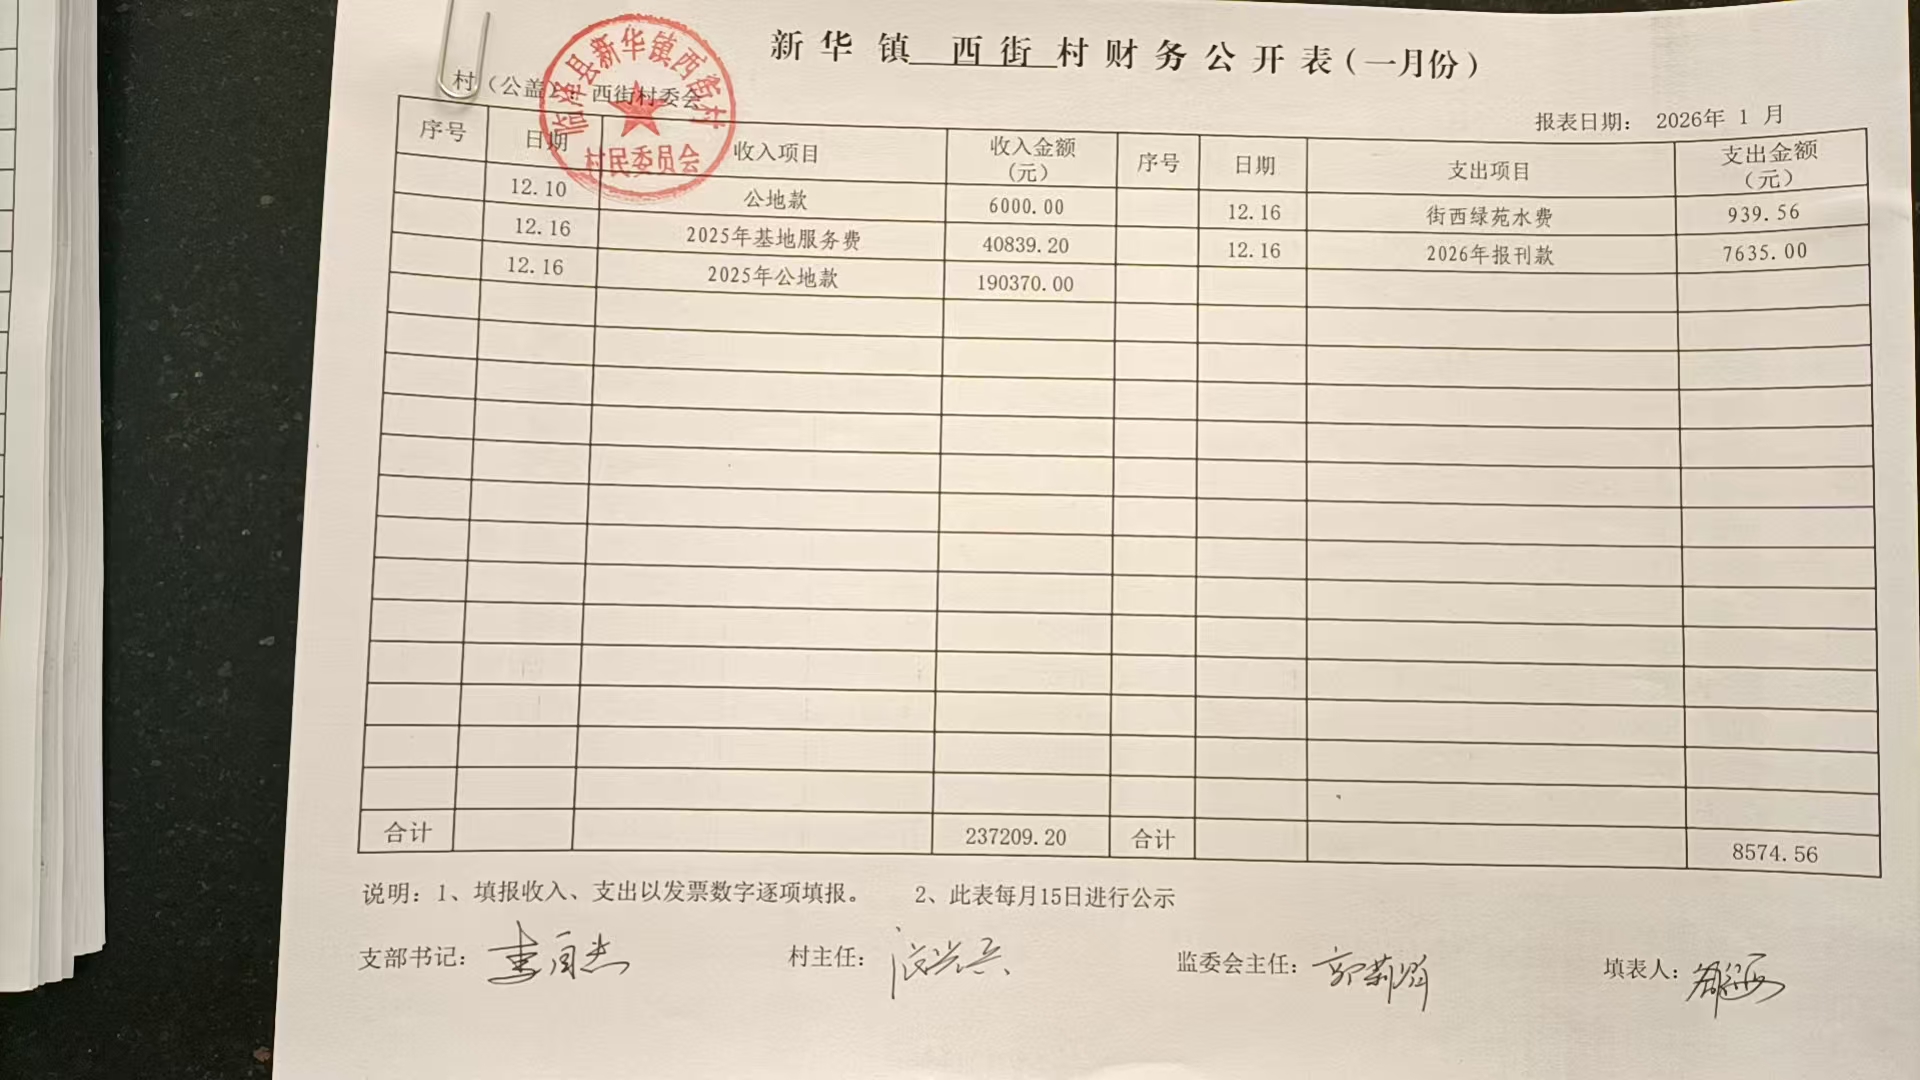 新华镇 西街 村财务公开表(一月份)
村（公盖）：西街村委会
临泽县新华镇西街村
村民委员会
报表日期： 2026年 1 月
序号 日期 收入项目 收入金额（元） 序号 日期 支出项目 支出金额（元）
12.10 公地款 6000.00 12.16 街西绿苑水费 939.56
12.16 2025年基地服务费 40839.20 12.16 2026年报刊款 7635.00
12.16 2025年公地款 190370.00
合计 237209.20 合计 8574.56
说明：1、填报收入、支出以发票数字逐项填报。 2、此表每月15日进行公示
支部书记： 村主任： 监委会主任： 填表人：